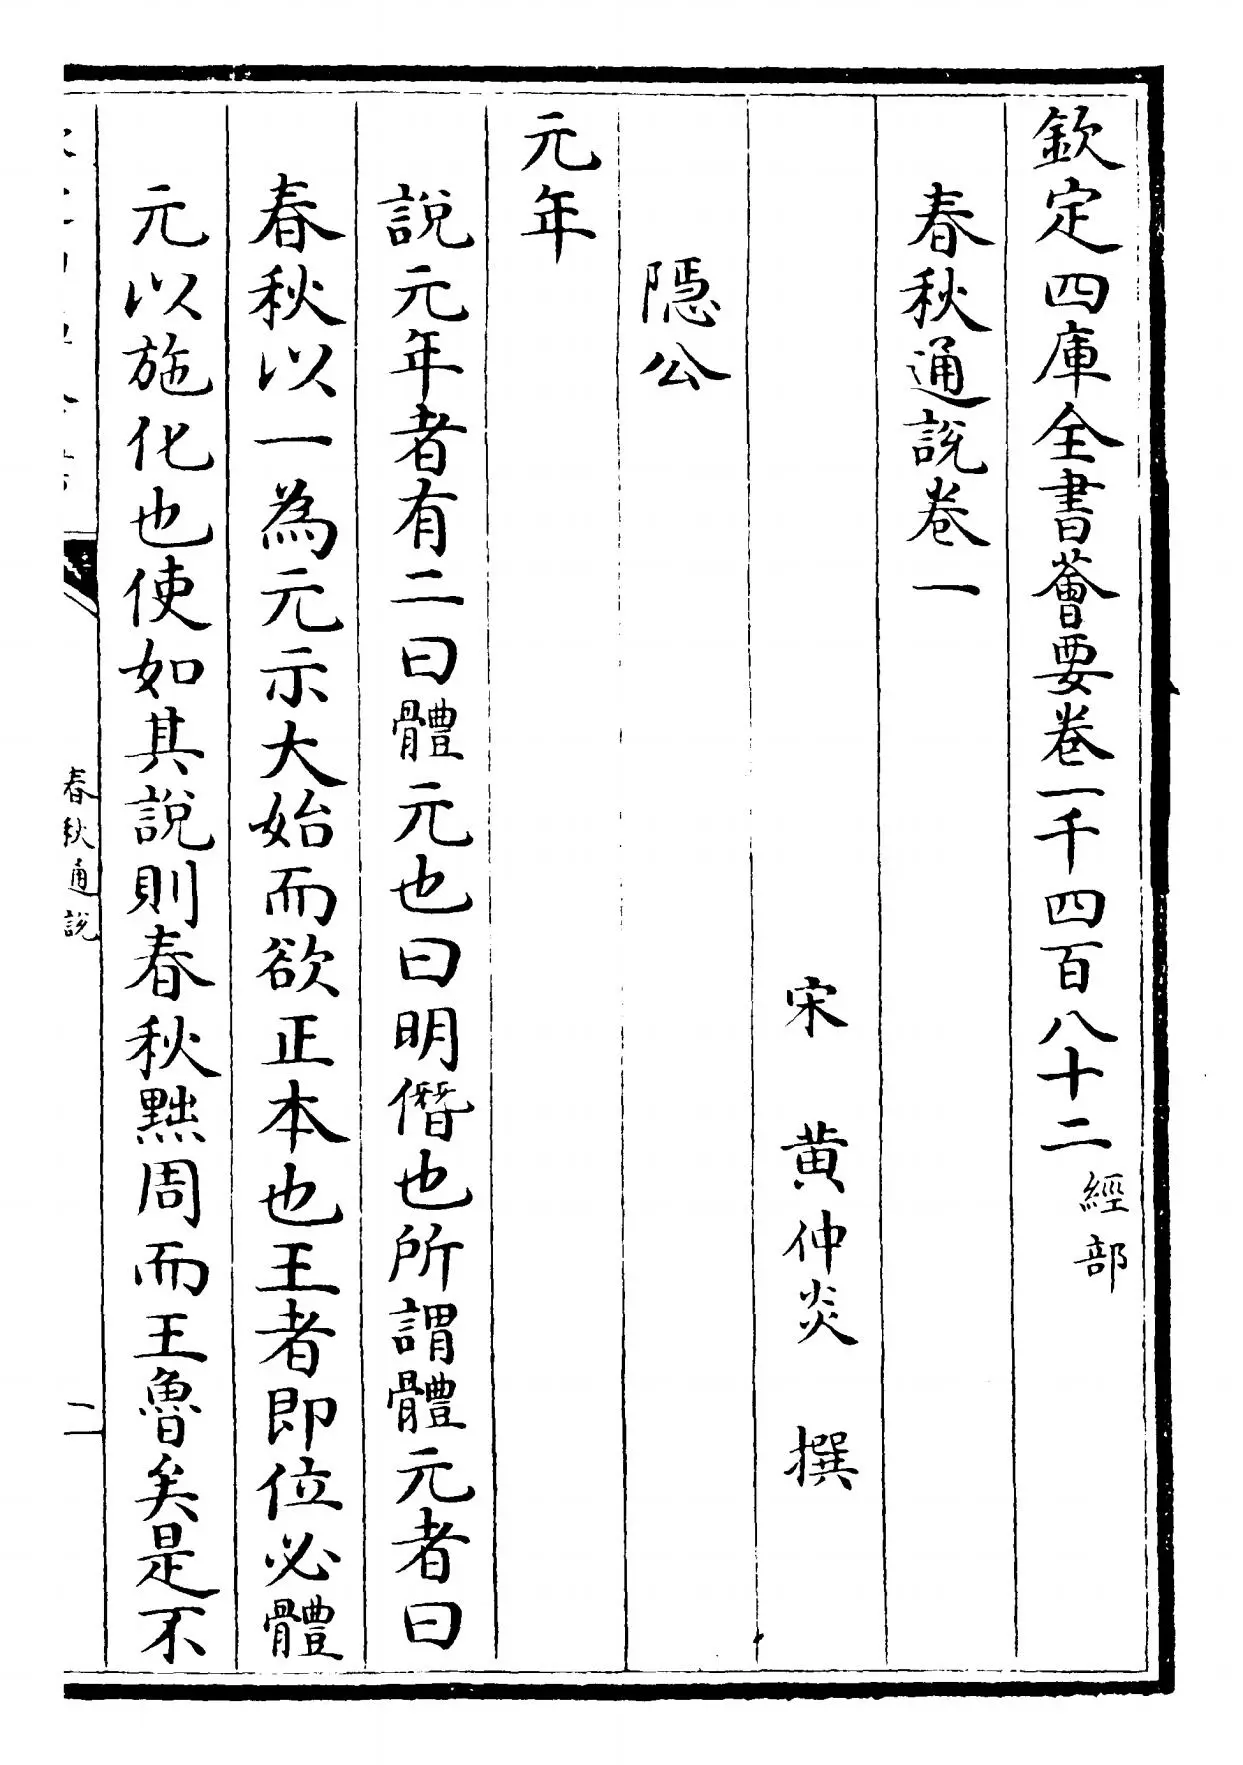 欽定四庫全書薈要卷一千四百八十二經部
春秋通說卷一
宋 黄仲炎 撰
隱公
元年
說元年者有二曰體元也曰明僭也所謂體元者曰
春秋以一為元示大始而欲正本也王者即位必體
元以施化也使如其說則春秋黜周而王魯矣是不
春秋通說
二